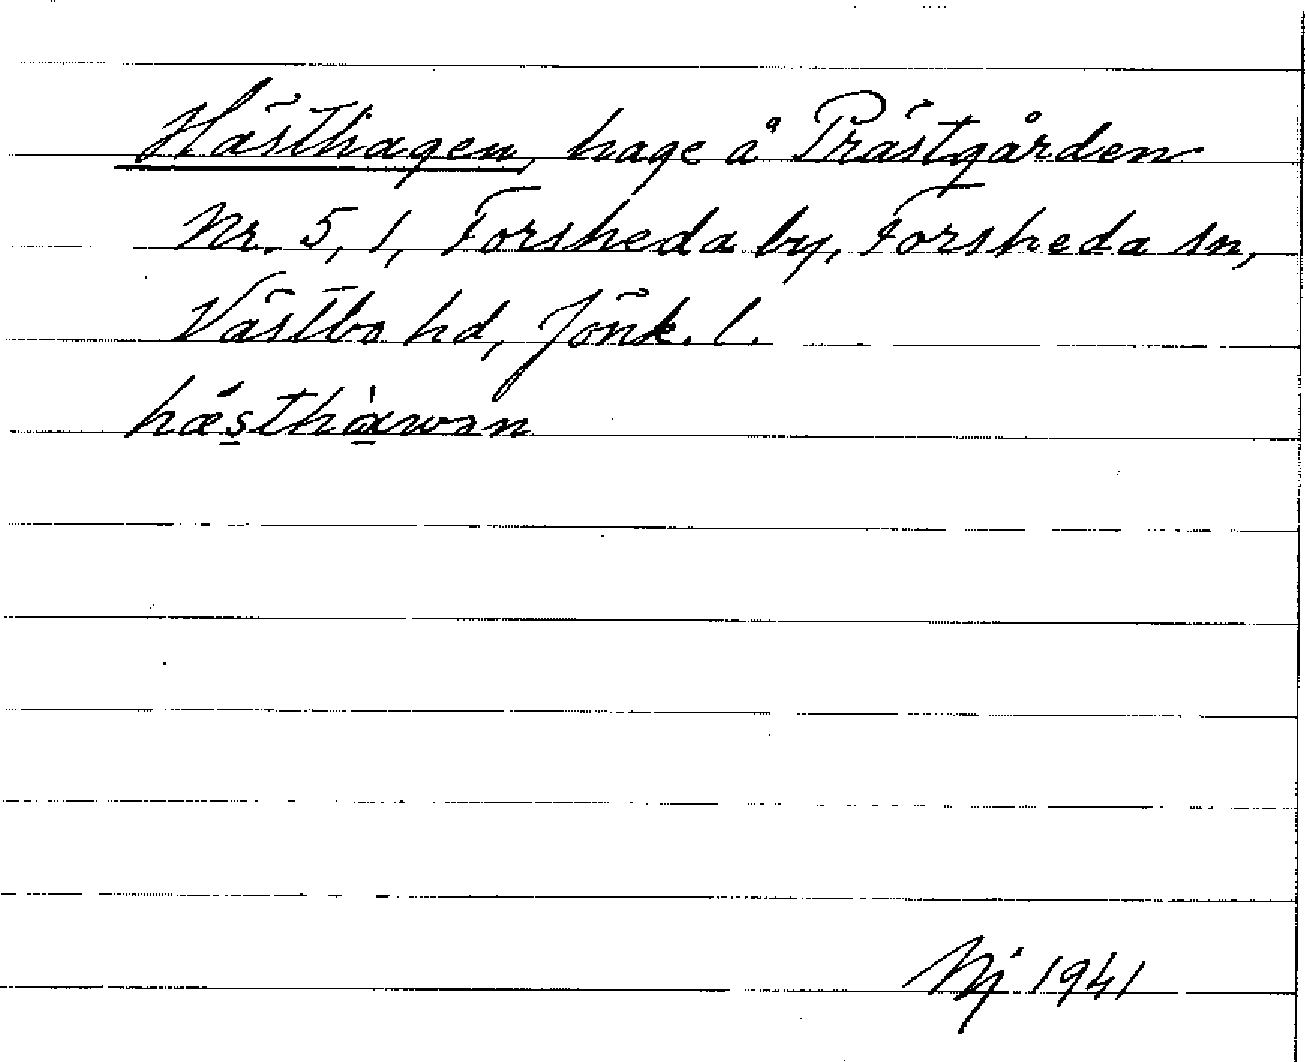 Hästhagen, hage å Prästgården
Nr. 5, 1, Forsheda by, Forsheda sn,
Västbo hd, Jönk. l.
Nj 1941